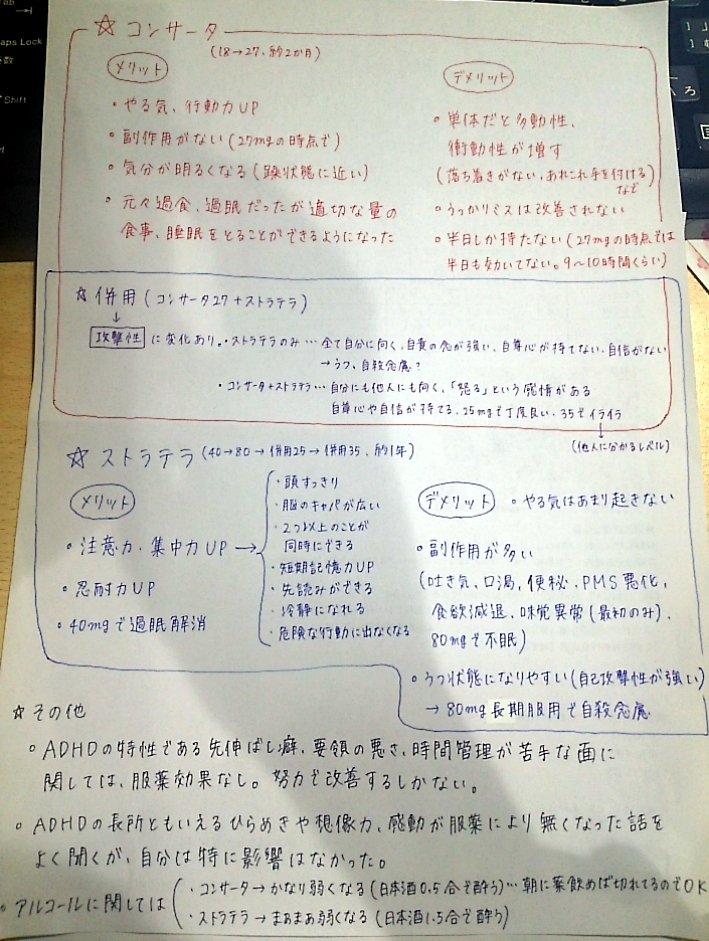 ☆ コンサータ
(18→27、約2か月)
メリット
・やる気、行動力UP
・副作用がない(27mgの時点で)
・気分が明るくなる(躁状態に近い)
・元々過食、過眠だったが適切な量の
食事、睡眠をとることができるようになった
デメリット
・単体だと多動性、
衝動性が増す
(落ち着きがない、あれこれ手を付ける)
など
・うっかりミスは改善されない
・半日しか持たない(27mgの時点では
半日も効いてない。9〜10時間くらい)
☆ 併用(コンサータ27+ストラテラ)
↓
攻撃性 に変化あり。・ストラテラのみ… 全て自分に向く、自責の念が強い、自尊心が持てない、自信がない
→うつ、自殺念慮?
・コンサータ+ストラテラ… 自分にも他人にも向く、「怒る」という感情がある
自尊心や自信が持てる、25mgで丁度良い、35でイライラ
↓
(他人に分かるレベル)
☆ ストラテラ (40→80→併用25→併用35、約1年)
メリット
・注意力・集中力UP→
・頭すっきり
・脳のキャパが広い
・2つ以上のことが
同時にできる
・短期記憶力UP
・先読みができる
・冷静になれる
・危険な行動に出なくなる
・忍耐力UP
・40mgで過眠解消
デメリット
・やる気はあまり起きない
・副作用が多い
(吐き気、口渇、便秘、PMS悪化、
食欲減退、味覚異常(最初のみ)、
80mgで不眠)
・うつ状態になりやすい(自己攻撃性が強い)
→80mg長期服用で自殺念慮
☆ その他
○ ADHDの特性である先伸ばし癖、要領の悪さ、時間管理が苦手な面に
関しては、服薬効果なし。努力で改善するしかない。
○ ADHDの長所ともいえるひらめきや想像力、感動が服薬により無くなった話を
よく聞くが、自分は特に影響はなかった。
○ アルコールに関しては
・コンサータ→かなり弱くなる(日本酒0.5合で酔う)…朝に薬飲めば切れてるのでOK
・ストラテラ→まぁまぁ弱くなる(日本酒1.5合で酔う)
Caps Lock
Shift
Tab
英数
ろ